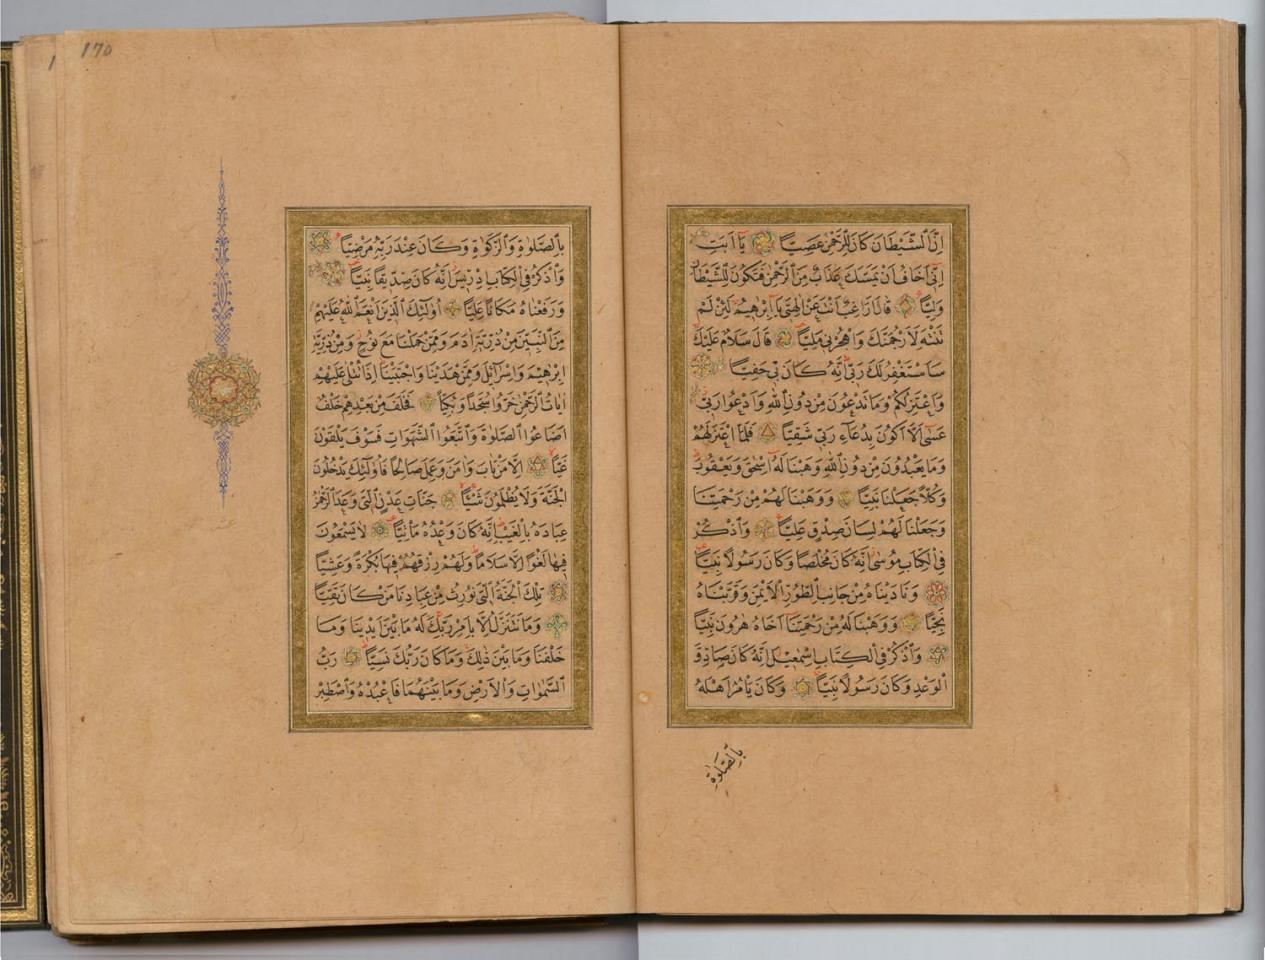 اِنَّ الشَّيْطَانَ كَانَ لِلرَّحْمٰنِ عَصِيًّا يَا اَبَتِ
اِنِّى اَخَافُ اَنْ يَمَسَّكَ عَذَابٌ مِنَ الرَّحْمٰنِ فَتَكُونَ لِلشَّيْطَانِ
وَلِيًّا قَالَ اَرَاغِبٌ اَنْتَ عَنْ اٰلِهَتِى يَا اِبْرٰهِيمُ لَئِنْ لَمْ
تَنْتَهِ لَاَرْجُمَنَّكَ وَاهْجُرْنِى مَلِيًّا قَالَ سَلَامٌ عَلَيْكَ
سَاَسْتَغْفِرُ لَكَ رَبِّى اِنَّهُ كَانَ بِى حَفِيًّا
وَاَعْتَزِلُكُمْ وَمَا تَدْعُونَ مِنْ دُونِ اللّٰهِ وَاَدْعُوا رَبِّى
عَسٰى اَلَّا اَكُونَ بِدُعَاءِ رَبِّى شَقِيًّا فَلَمَّا اعْتَزَلَهُمْ
وَمَا يَعْبُدُونَ مِنْ دُونِ اللّٰهِ وَهَبْنَا لَهُ اِسْحٰقَ وَيَعْقُوبَ
وَكُلًّا جَعَلْنَا نَبِيًّا وَوَهَبْنَا لَهُمْ مِنْ رَحْمَتِنَا
وَجَعَلْنَا لَهُمْ لِسَانَ صِدْقٍ عَلِيًّا وَاذْكُرْ
فِى الْكِتَابِ مُوسٰى اِنَّهُ كَانَ مُخْلَصًا وَكَانَ رَسُولًا نَبِيًّا
وَنَادَيْنَاهُ مِنْ جَانِبِ الطُّورِ الْاَيْمَنِ وَقَرَّبْنَاهُ
نَجِيًّا وَوَهَبْنَا لَهُ مِنْ رَحْمَتِنَا اَخَاهُ هٰرُونَ نَبِيًّا
وَاذْكُرْ فِى الْكِتَابِ اِسْمٰعِيلَ اِنَّهُ كَانَ صَادِقَ
الْوَعْدِ وَكَانَ رَسُولًا نَبِيًّا وَكَانَ يَاْمُرُ اَهْلَهُ
بِالصَّلٰوةِ
170
1
بِالصَّلٰوةِ وَالزَّكٰوةِ وَكَانَ عِنْدَ رَبِّهِ مَرْضِيًّا
وَاذْكُرْ فِى الْكِتَابِ اِدْرِيسَ اِنَّهُ كَانَ صِدِّيقًا نَبِيًّا
وَرَفَعْنَاهُ مَكَانًا عَلِيًّا اُولٰئِكَ الَّذِينَ اَنْعَمَ اللّٰهُ عَلَيْهِمْ
مِنَ النَّبِيِّنَ مِنْ ذُرِّيَّةِ اٰدَمَ وَمِمَّنْ حَمَلْنَا مَعَ نُوحٍ وَمِنْ ذُرِّيَّةِ
اِبْرٰهِيمَ وَاِسْرَائِلَ وَمِمَّنْ هَدَيْنَا وَاجْتَبَيْنَا اِذَا تُتْلٰى عَلَيْهِمْ
اٰيَاتُ الرَّحْمٰنِ خَرُّوا سُجَّدًا وَبُكِيًّا فَخَلَفَ مِنْ بَعْدِهِمْ خَلْفٌ
اَضَاعُوا الصَّلٰوةَ وَاتَّبَعُوا الشَّهَوَاتِ فَسَوْفَ يَلْقَوْنَ
غَيًّا اِلَّا مَنْ تَابَ وَاٰمَنَ وَعَمِلَ صَالِحًا فَاُولٰئِكَ يَدْخُلُونَ
الْجَنَّةَ وَلَا يُظْلَمُونَ شَيْئًا جَنَّاتِ عَدْنٍ الَّتِى وَعَدَ الرَّحْمٰنُ
عِبَادَهُ بِالْغَيْبِ اِنَّهُ كَانَ وَعْدُهُ مَاْتِيًّا لَا يَسْمَعُونَ
فِيهَا لَغْوًا اِلَّا سَلَامًا وَلَهُمْ رِزْقُهُمْ فِيهَا بُكْرَةً وَعَشِيًّا
تِلْكَ الْجَنَّةُ الَّتِى نُورِثُ مِنْ عِبَادِنَا مَنْ كَانَ تَقِيًّا
وَمَا نَتَنَزَّلُ اِلَّا بِاَمْرِ رَبِّكَ لَهُ مَا بَيْنَ اَيْدِينَا وَمَا
خَلْفَنَا وَمَا بَيْنَ ذٰلِكَ وَمَا كَانَ رَبُّكَ نَسِيًّا رَبُّ
السَّمٰوَاتِ وَالْاَرْضِ وَمَا بَيْنَهُمَا فَاعْبُدْهُ وَاصْطَبِرْ